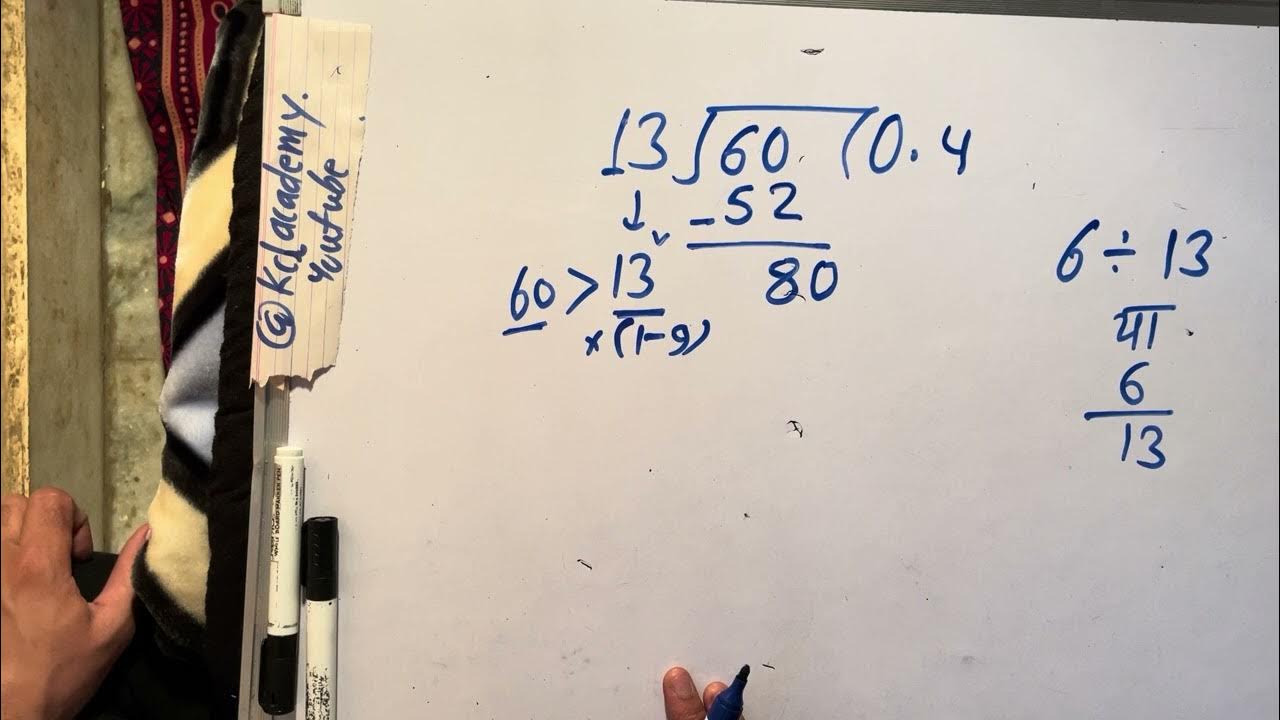 @Kclacademy.
Youtube
13 √60 (0.4
↓ -52
60 > 13 80
× (1-9)
6 ÷ 13
या
6
13